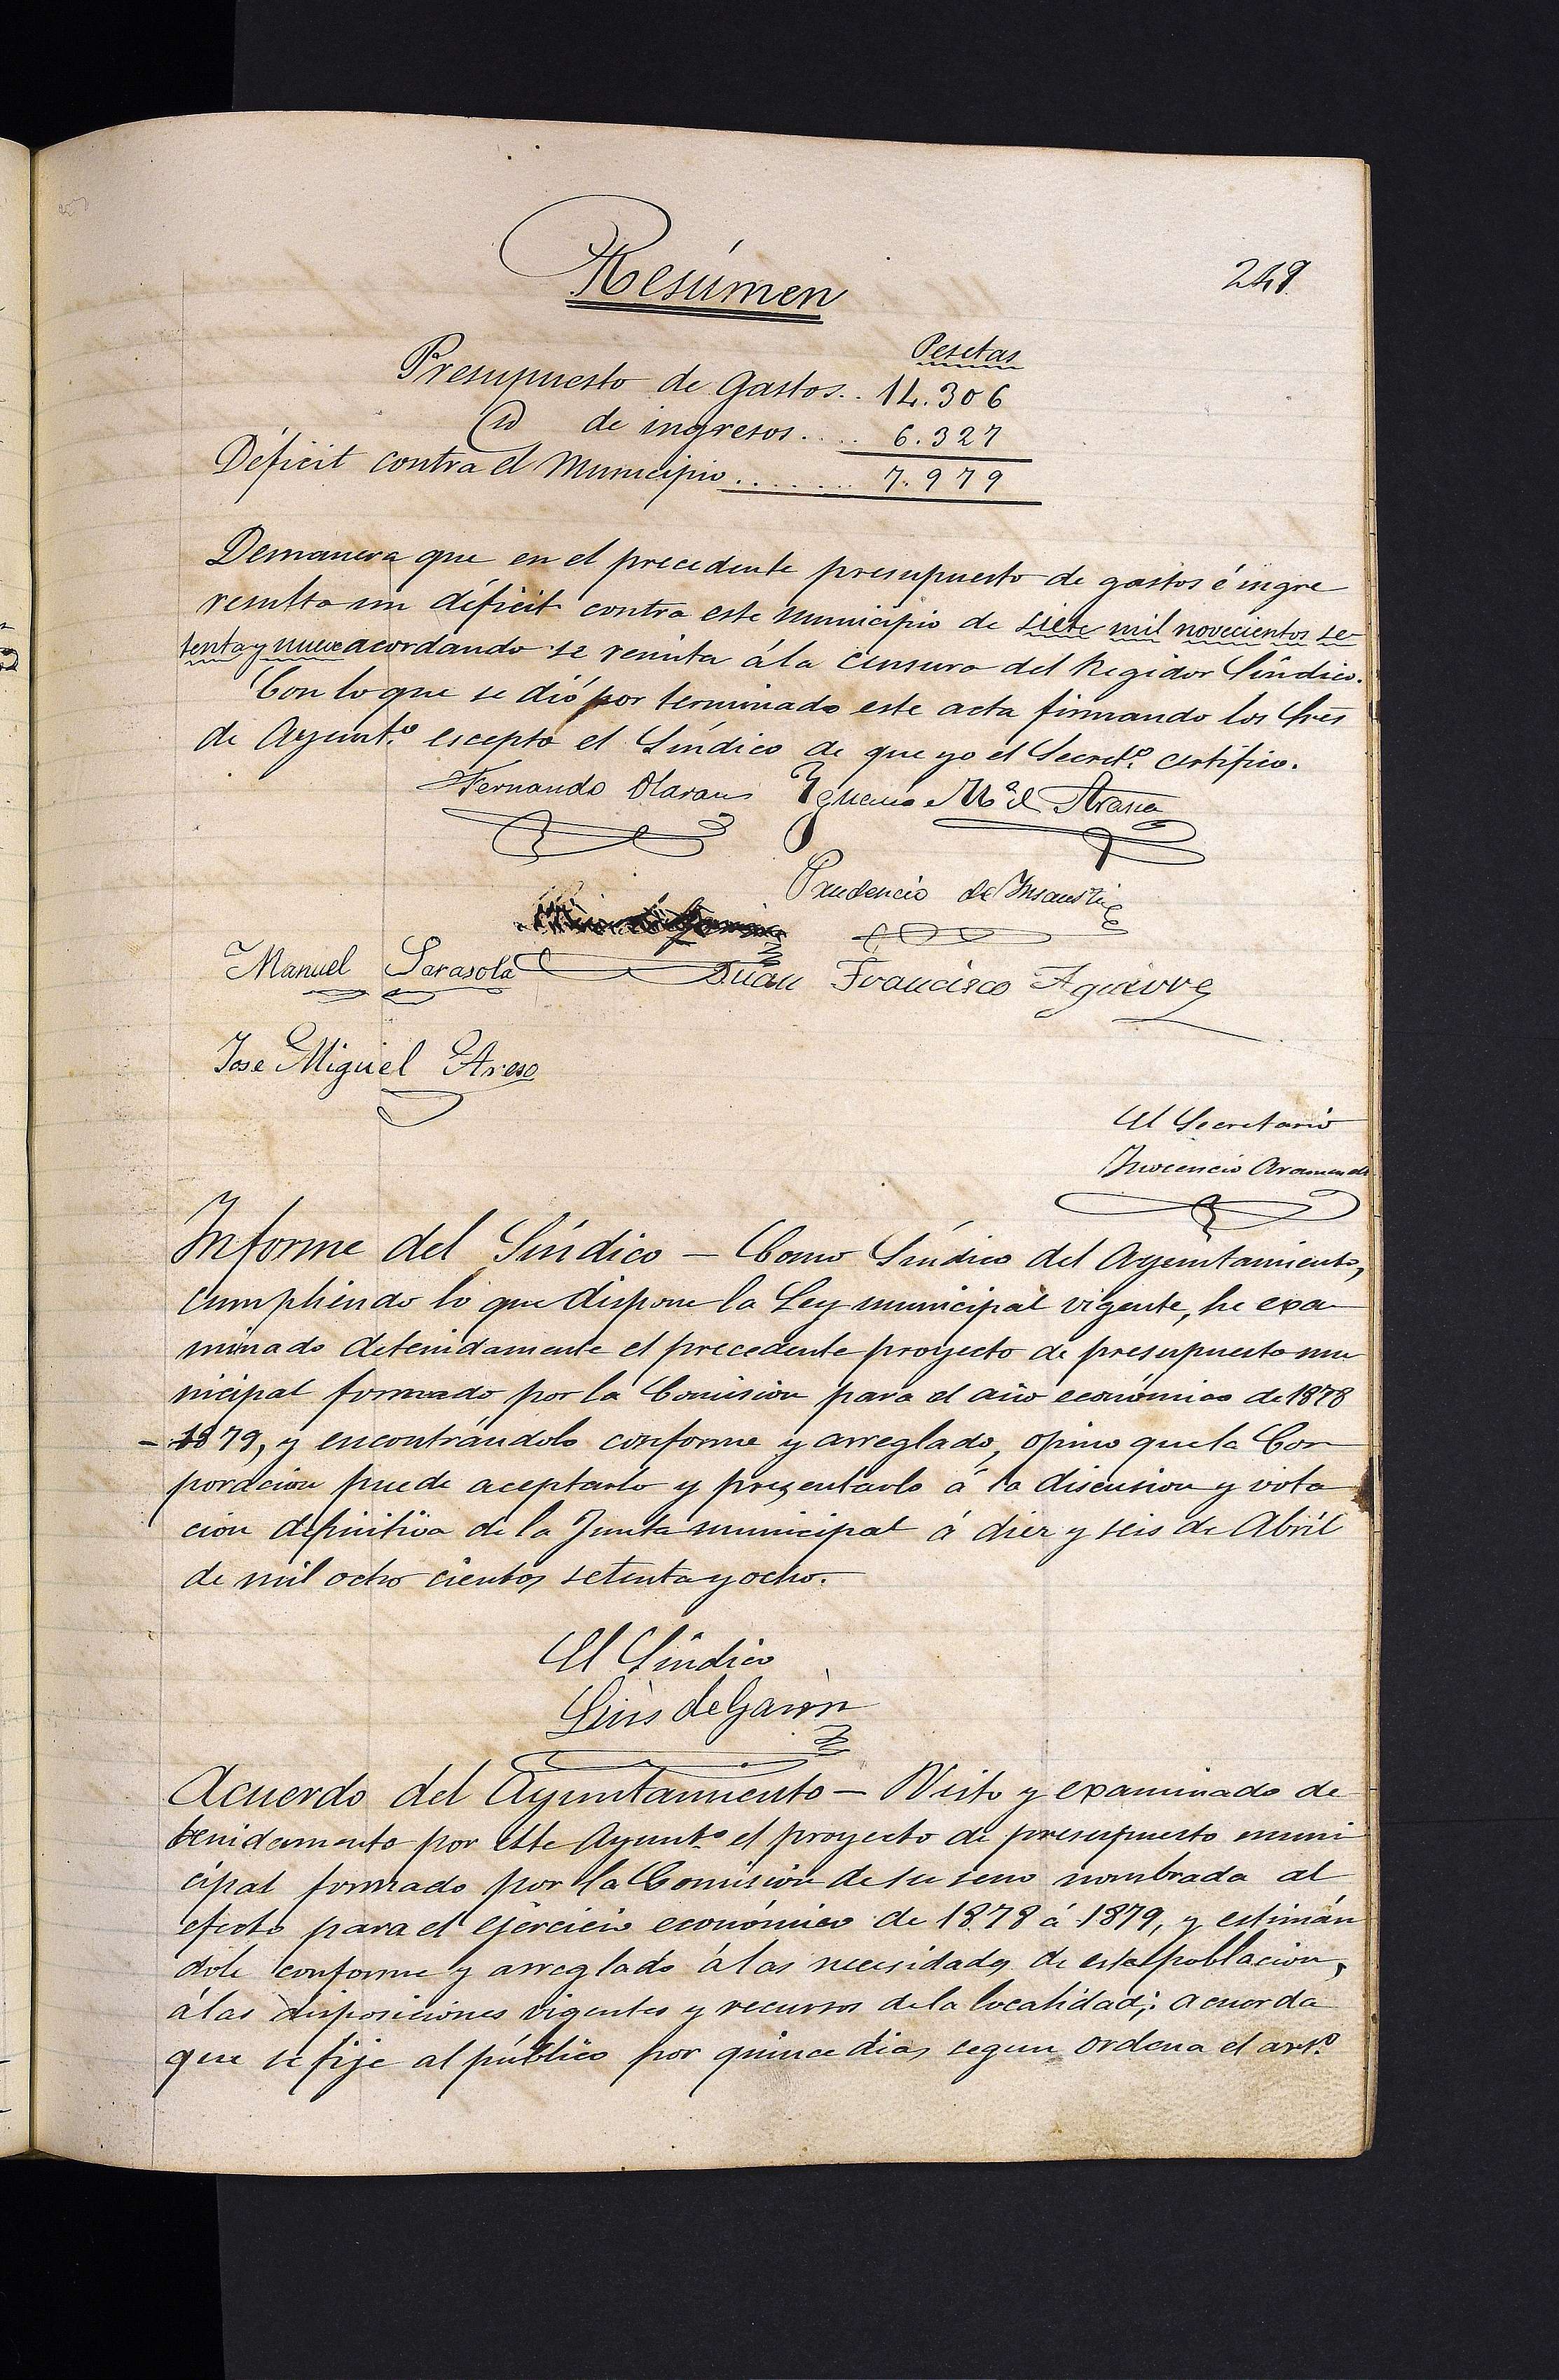 Resúmen
249
Pesetas
Presupuesto de Gastos.. 14.306
Id de ingresos..... 6.327
Déficit contra el Municipio........ 7.979
Demanera que en el precedente presupuesto de gastos é ingre
resulta un déficit contra este Municipio de siete mil novecientos se-
tenta y nueve acordando se remita á la censura del Regidor Síndico.
Con lo que se dió por terminado este acta firmando los Sres
de Ayuntº. escepto el Síndico de que yo el Secretº. certifico.
Fernando Olaran Ignacio Mª de Arana
Prudencio de Insausti
Manuel Sarasola
Juan Francisco Aguirre
Jose Miguel Areso
El Secretario
Inocencio Aramendi
Informe del Síndico – Como Síndico del Ayuntamiento,
cumpliendo lo que dispone la Ley municipal vigente, he exa
minado detenidamente el precedente proyecto de presupuesto mu
nicipal formado por la Comision para el año económico de 1878
– 1879, y encontrándolo conforme y arreglado, opino que la Cor
poracion puede aceptarlo y presentarlo á la discusion y vota
cion definitiva de la Junta municipal á diez y seis de Abril
de mil ocho cientos setenta y ocho.
El Síndico
Luis de Garin
Acuerdo del Ayuntamiento – Visto y examinado de
tenidamente por este Ayuntº el proyecto de presupuesto muni
cipal formado por la Comision de su seno nombrada al
efecto para el ejercicio económico de 1878 á 1879, y estimán
dole conforme y arreglado á las necesidades de esta poblacion,
á las disposiciones vigentes y recursos de la localidad; acuerda
que se fije al público por quince dias segun ordena el artº.